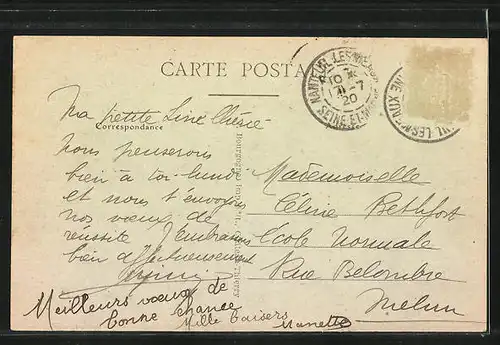 CARTE POSTA
Correspondance
Ma petite Line chérie
Nous penserons
bien à toi lundi
et nous t'envoyons
nos vœux de
réussite
bien affectueusement
Meilleurs vœux de
bonne chance
Mille baisers
Manette
Mademoiselle
Céline Rethfort
École Normale
Rue Belombre
Melun
NANTEUIL-LES-MEAUX
10
11-7
20
SEINE-ET-MARNE